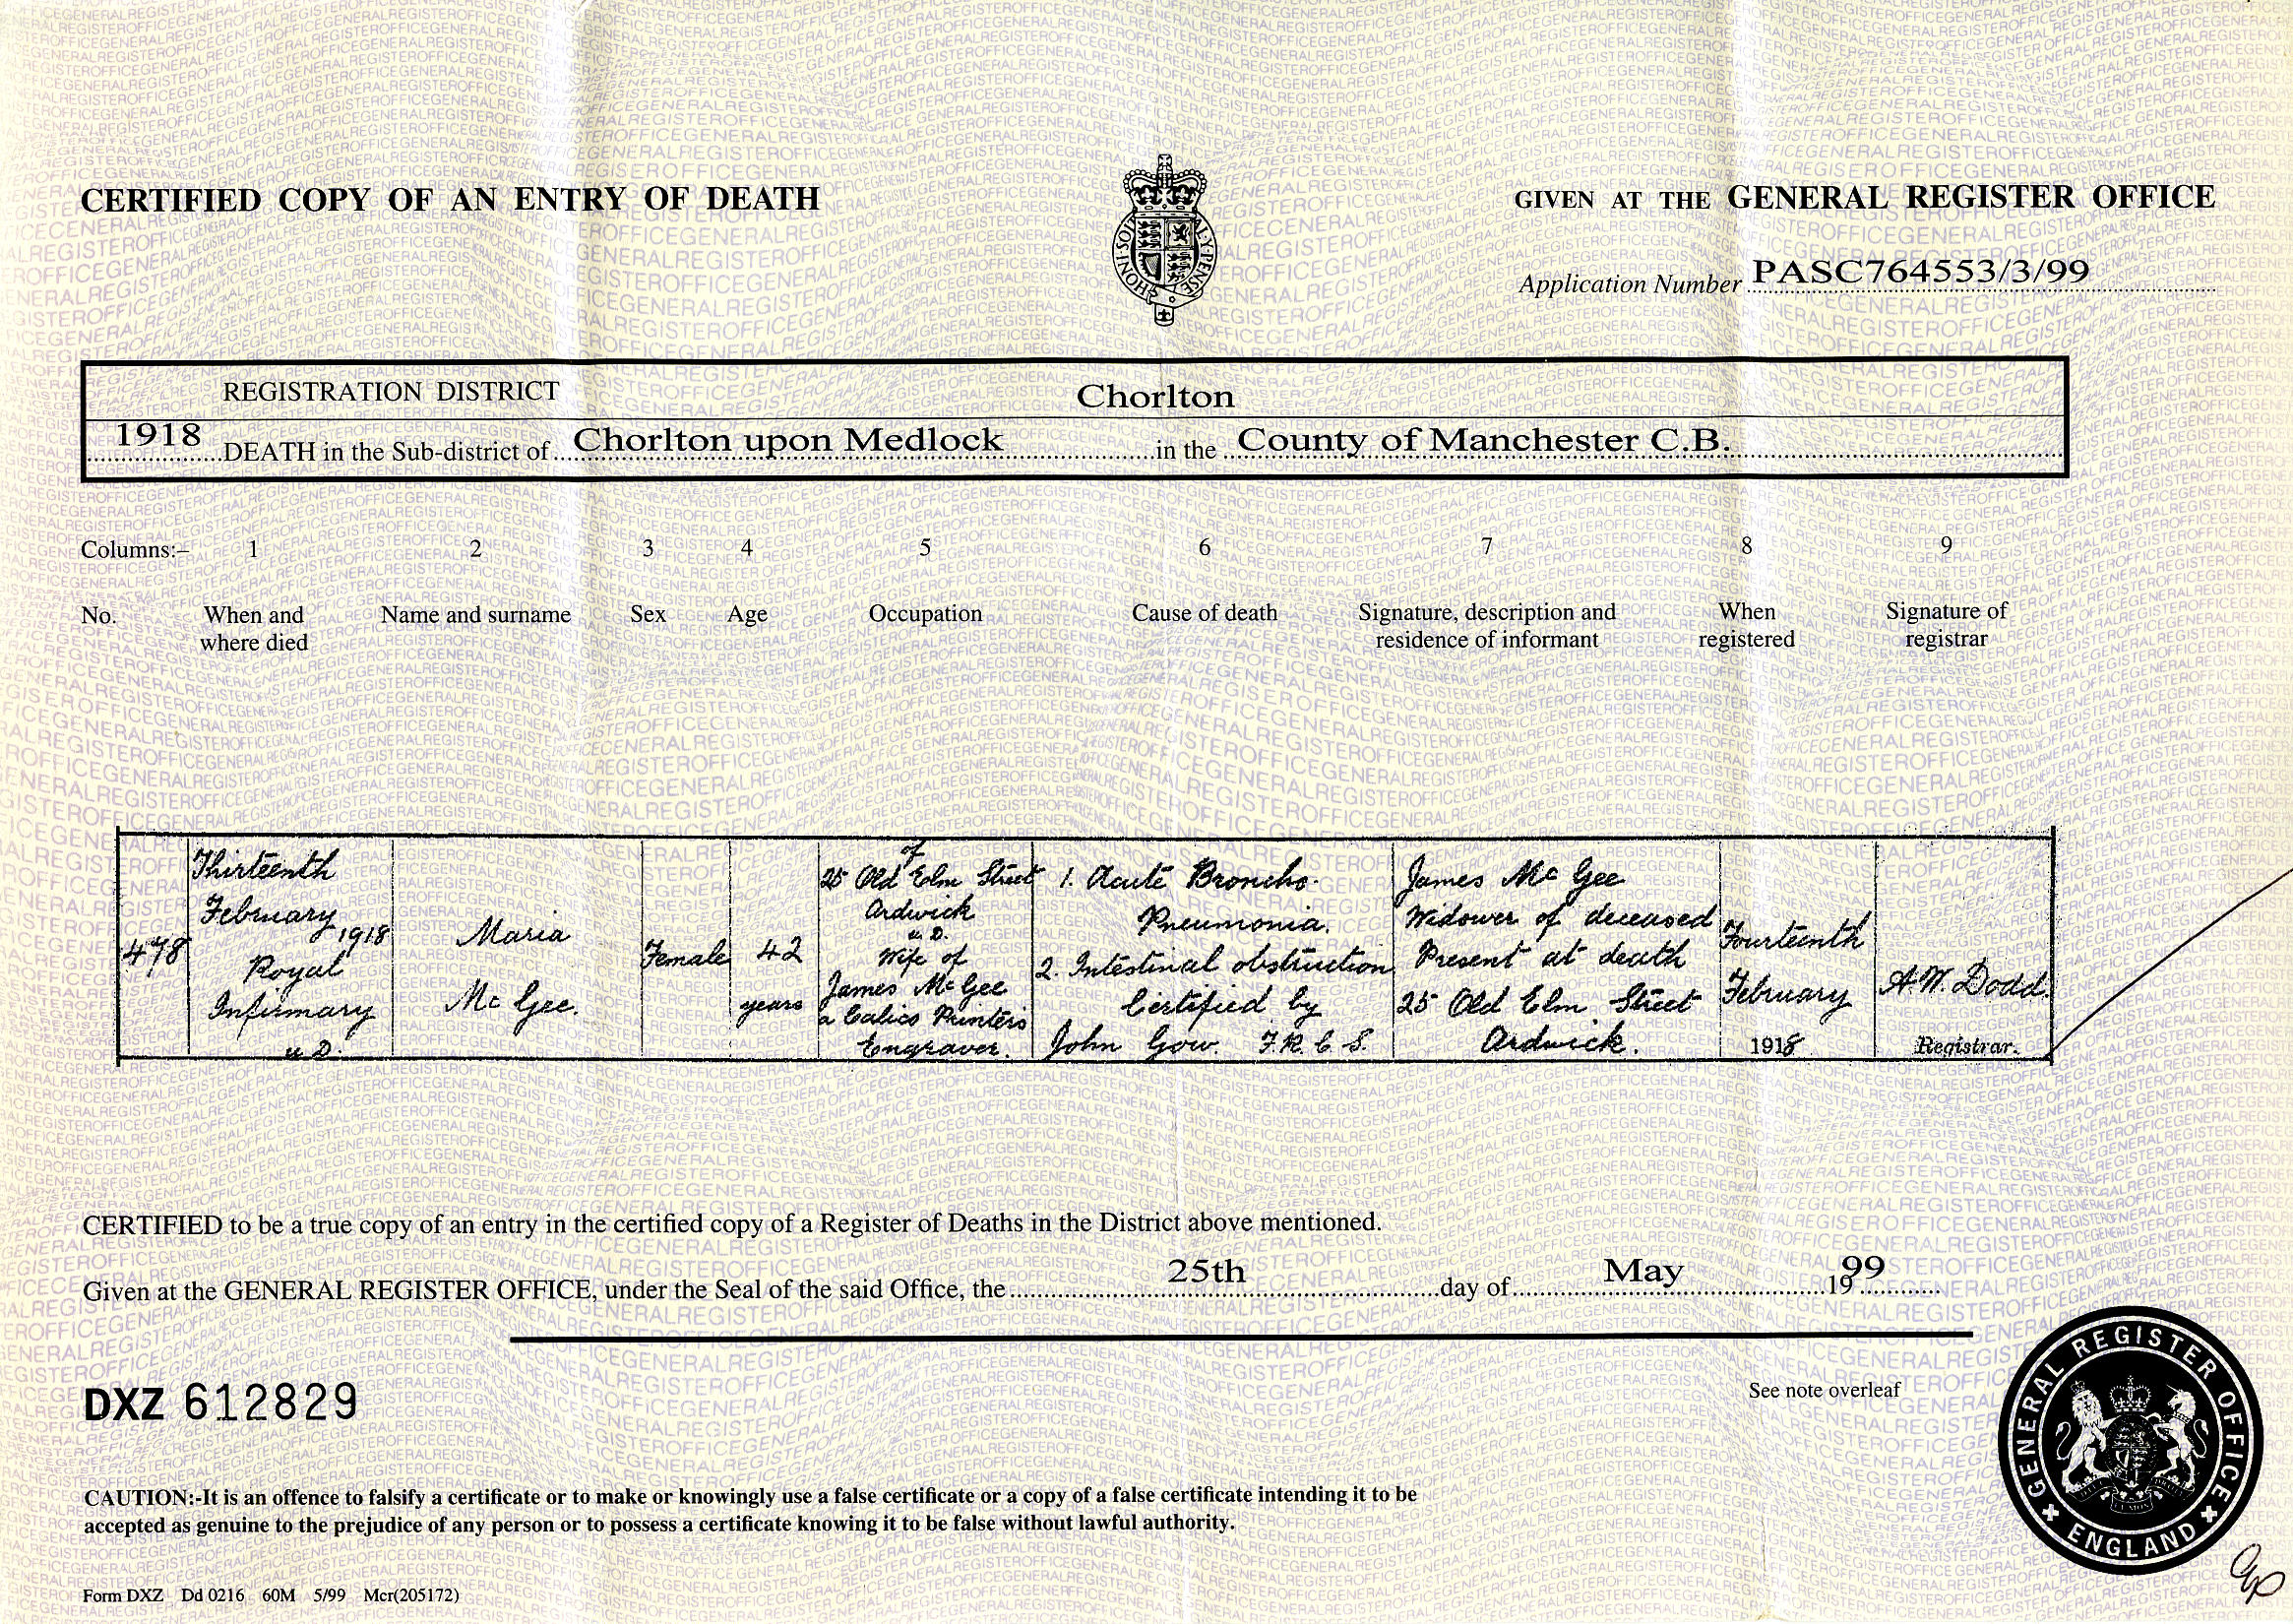 CERTIFIED COPY OF AN ENTRY OF DEATH
GIVEN AT THE GENERAL REGISTER OFFICE
HONI·SOIT AL·Y·PENSE
Application Number PASC764553/3/99
REGISTRATION DISTRICT Chorlton
1918 DEATH in the Sub-district of Chorlton upon Medlock in the County of Manchester C.B.
Columns:– 1 2 3 4 5 6 7 8 9
No.
When and
where died
Name and surname
Sex
Age
Occupation
Cause of death
Signature, description and
residence of informant
When
registered
Signature of
registrar
478
Thirteenth
February
1918
Royal
Infirmary
u. D.
Maria
Mc Gee.
Female
42
years
of
25 Old Elm Street
Ardwick
u. D.
Wife of
James Mc Gee
a Calico Printers
Engraver.
1. Acute Broncho-
Pneumonia.
2. Intestinal obstruction
Certified by
John Gow. F.R.C.S.
James Mc Gee
Widower of deceased
Present at death
25 Old Elm Street
Ardwick.
Fourteenth
February
1918
A.W. Dodd.
Registrar.
CERTIFIED to be a true copy of an entry in the certified copy of a Register of Deaths in the District above mentioned.
Given at the GENERAL REGISTER OFFICE, under the Seal of the said Office, the 25th day of May 1999
DXZ 612829
See note overleaf
GENERAL REGISTER OFFICE
ENGLAND
CAUTION:-It is an offence to falsify a certificate or to make or knowingly use a false certificate or a copy of a false certificate intending it to be
accepted as genuine to the prejudice of any person or to possess a certificate knowing it to be false without lawful authority.
Form DXZ Dd 0216 60M 5/99 Mcr(205172)